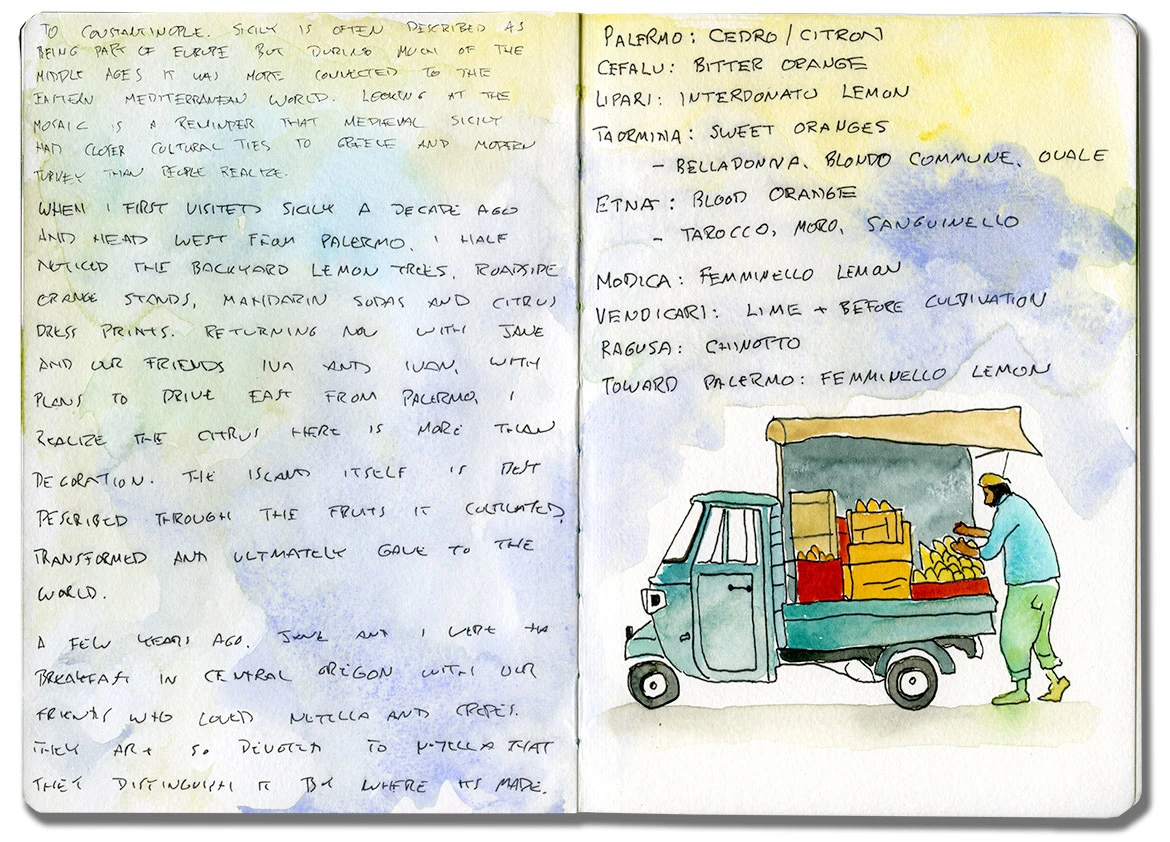 TO CONSTANTINOPLE. SICILY IS OFTEN DESCRIBED AS
BEING PART OF EUROPE BUT DURING MUCH OF THE
MIDDLE AGES IT WAS MORE CONNECTED TO THE
EASTERN MEDITERRANEAN WORLD. LOOKING AT THE
MOSAIC IS A REMINDER THAT MEDIEVAL SICILY
HAD CLOSER CULTURAL TIES TO GREECE AND MODERN
TURKEY THAN PEOPLE REALIZE.
WHEN I FIRST VISITED SICILY A DECADE AGO
AND HEAD WEST FROM PALERMO, I HALF
NOTICED THE BACKYARD LEMON TREES, ROADSIDE
ORANGE STANDS, MANDARIN SODAS AND CITRUS
DRESS PRINTS. RETURNING NOW WITH JANE
AND OUR FRIENDS IVA AND IVAN, WITH
PLANS TO DRIVE EAST FROM PALERMO, I
REALIZE THE CITRUS HERE IS MORE THAN
DECORATION. THE ISLAND ITSELF IS BEST
DESCRIBED THROUGH THE FRUITS IT CULTIVATED,
TRANSFORMED AND ULTIMATELY GAVE TO THE
WORLD.
A FEW YEARS AGO, JANE AND I WERE
BREAKFAST IN CENTRAL OREGON WITH OUR
FRIENDS WHO LOVED NUTELLA AND CREPES.
THEY ARE SO DEVOTED TO NUTELLA THAT
THEY DISTINGUISH IT BY WHERE ITS MADE.
PALERMO: CEDRO / CITRON
CEFALU: BITTER ORANGE
LIPARI: INTERDONATO LEMON
TAORMINA: SWEET ORANGES
- BELLADONNA, BLONDO COMMUNE, OVALE
ETNA: BLOOD ORANGE
- TAROCCO, MORO, SANGUINELLO
MODICA: FEMMINELLO LEMON
VENDICARI: LIME + BEFORE CULTIVATION
RAGUSA: CHINOTTO
TOWARD PALERMO: FEMMINELLO LEMON